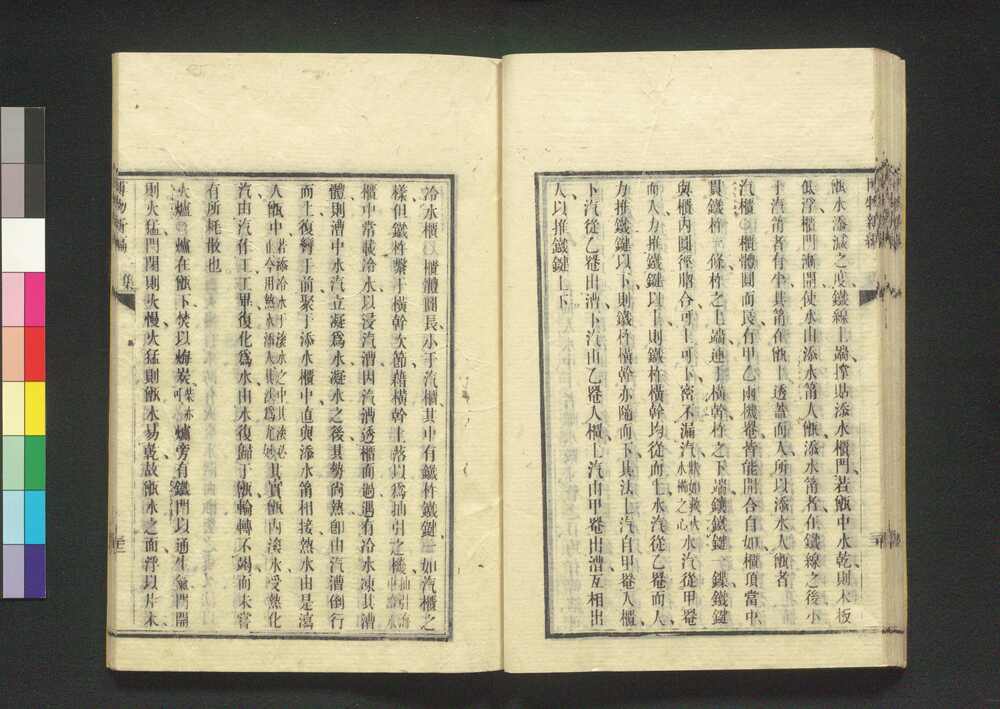 甑水添減之度鐵線上端撑貼添水櫃門若甑中水乾則木板
低浮櫃門漸開使水由添水筩入甑添水筩者在鐵線之後小
于汽筩者有半其筩在甑上透蓋而入所以添水入甑者
汽櫃 櫃體圓而長有甲乙兩機罨皆能開合自如櫃頂當中
貫鐵杵一條杵之上端連于橫幹杵之下端鑲鐵鍵一鐵鍵
與櫃內圓徑脗合可上可下密不漏汽狀如救火水桶之心水汽從甲罨
而入力推鐵鍵以上則鐵杵橫幹均從而上水汽從乙罨而入
力推鐵鍵以下則鐵杵橫幹亦隨而下其法上汽自甲罨入櫃
下汽從乙罨出漕下汽由乙罨入櫃上汽由甲罨出漕互相出
入以推鐵鍵上下
冷水櫃 櫃體圓長小于汽櫃其中有鐵杵鐵鍵一如汽櫃之
樣但鐵杵繫于橫幹次節藉橫幹上落以爲抽引之機
櫃中常載冷水以浸汽漕因汽漕透櫃面過遇有冷水凍其漕
體則漕中水汽立凝爲水凝水之後其勢尙熱卽由汽漕倒行
而上復繞于前聚于添水櫃中直與添水筩相接熱水由是瀉
入甑中若添冷水于滾水之中其滾必止今用熱水添入則滾爲尤妙其實甑內滾水受熱化
汽由汽作工工畢復化爲水由水復歸于甑輪轉不竭而未嘗
有所耗散也
火爐 爐在甑下焚以煤炭柴亦可爐旁有鐵門以通生氣門開
則火猛門閉則火慢火猛則甑水易乾故甑水之面浮以片木